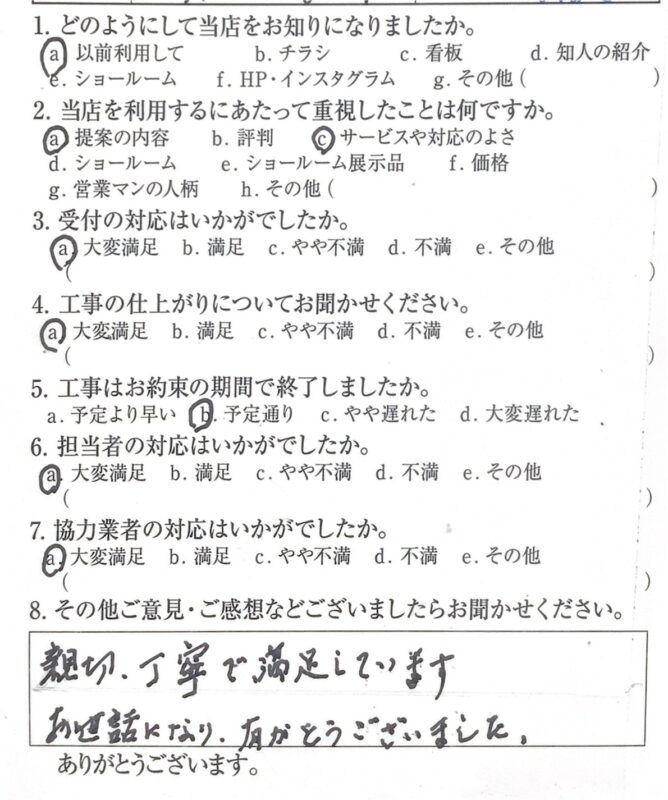 1. どのようにして当店をお知りになりましたか。
a 以前利用して b. チラシ c. 看板 d. 知人の紹介
e. ショールーム f. HP・インスタグラム g. その他 ( )
2. 当店を利用するにあたって重視したことは何ですか。
a 提案の内容 b. 評判 c サービスや対応のよさ
d. ショールーム e. ショールーム展示品 f. 価格
g. 営業マンの人柄 h. その他 ( )
3. 受付の対応はいかがでしたか。
a. 大変満足 b. 満足 c. やや不満 d. 不満 e. その他
( )
4. 工事の仕上がりについてお聞かせください。
a. 大変満足 b. 満足 c. やや不満 d. 不満 e. その他
( )
5. 工事はお約束の期間で終了しましたか。
a. 予定より早い b. 予定通り c. やや遅れた d. 大変遅れた
6. 担当者の対応はいかがでしたか。
a. 大変満足 b. 満足 c. やや不満 d. 不満 e. その他
( )
7. 協力業者の対応はいかがでしたか。
a. 大変満足 b. 満足 c. やや不満 d. 不満 e. その他
( )
8. その他ご意見・ご感想などございましたらお聞かせください。
親切、丁寧で満足しています
お世話になり、有がとうございました。
ありがとうございます。